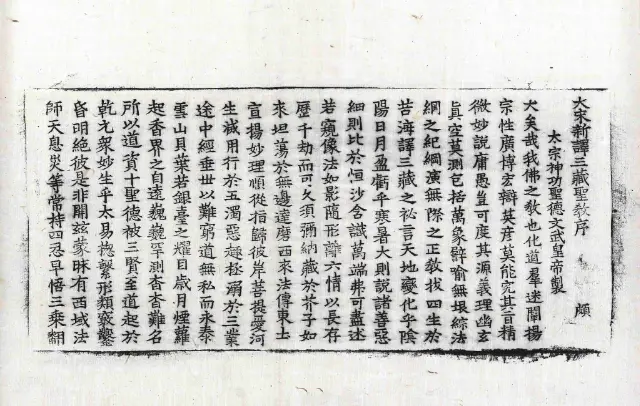 大宋新譯三藏聖教序 頗
太宗神功聖德文武皇帝製
大矣哉我佛之教也化導羣迷闡揚
宗性廣博宏辯英彥莫能究其旨精
微妙說庸愚豈可度其源義理幽玄
真空莫測包括萬象譬喻無垠綜法
網之紀綱演無際之正教拔四生於
苦海譯三藏之祕言天地變化乎陰
陽日月盈虧乎寒暑大則說諸善惡
細則比於恒沙含識萬端弗可盡述
若窺像法如影隨形離六情以長存
歷千劫而可久須彌納藏於芥子如
來坦蕩於無邊達磨西來法傳東土
宣揚妙理順從指歸彼岸菩提愛河
生滅用行於五濁惡趣拯溺於三業
途中經垂世以難窮道無私而永泰
雲山貝葉若銀臺之耀目歲月烟蘿
起香界之自遠巍巍罕測杳杳難名
所以道資十聖德被三賢至道起於
乾元妙生乎太易揔繫形類竅鑿
昏明絶彼是非開玆蒙昧有西域法
師天息災等常持四忍早悟三乘翻